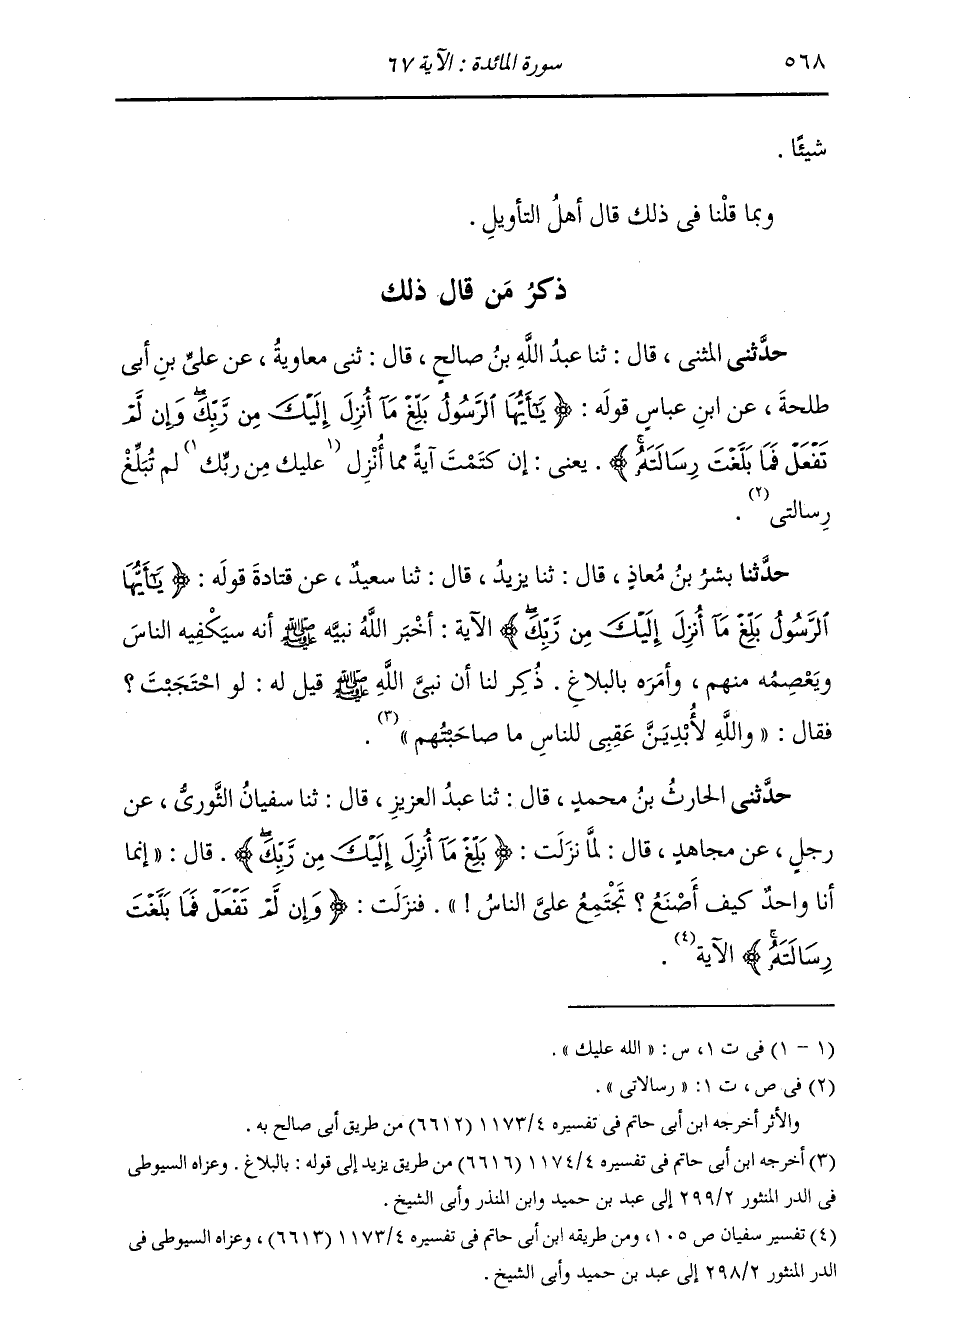 ٥٦٨ سورة المائدة : الآية ٦٧
شيئًا .
وبما قلْنا فى ذلك قال أهلُ التأويلِ .
ذكرُ مَن قال ذلك
حدَّثنى المثنى ، قال : ثنا عبدُ اللَّهِ بنُ صالحٍ ، قال : ثنى معاويةُ ، عن علىِّ بنِ أبى
طلحةَ ، عن ابنِ عباسٍ قولَه : ﴿ يَٰٓأَيُّهَا ٱلرَّسُولُ بَلِّغْ مَآ أُنزِلَ إِلَيْكَ مِن رَّبِّكَۖ وَإِن لَّمْ
تَفْعَلْ فَمَا بَلَّغْتَ رِسَالَتَهُۥۚ ﴾ . يعنى : إن كتَمْتَ آيةً مما أُنْزِل (١عليك مِن ربِّك١) لم تُبَلِّغْ
رسالتى(٢) .
حدَّثنا بشرُ بنُ مُعاذٍ ، قال : ثنا يزيدُ ، قال : ثنا سعيدٌ ، عن قتادةَ قولَه : ﴿ يَٰٓأَيُّهَا
ٱلرَّسُولُ بَلِّغْ مَآ أُنزِلَ إِلَيْكَ مِن رَّبِّكَۖ ﴾ الآية : أخْبَر اللَّهُ نبيَّه ﷺ أنه سيَكْفِيه الناسَ
ويَعْصِمُه منهم ، وأمَرَه بالبلاغِ . ذُكِر لنا أن نبىَّ اللَّهِ ﷺ قيل له : لو احْتَجَبْتَ ؟
فقال : « واللَّهِ لأُبْدِيَنَّ عَقِبِى للناسِ ما صاحَبْتُهم »(٣) .
حدَّثنى الحارثُ بنُ محمدٍ ، قال : ثنا عبدُ العزيزِ ، قال : ثنا سفيانُ الثَّورىُّ ، عن
رجلٍ ، عن مجاهدٍ ، قال : لمَّا نزَلَت : ﴿ بَلِّغْ مَآ أُنزِلَ إِلَيْكَ مِن رَّبِّكَۖ ﴾ . قال : « إنما
أنا واحدٌ كيف أَصْنَعُ ؟ تَجْتَمِعُ علىَّ الناسُ ! » . فنزَلَت : ﴿ وَإِن لَّمْ تَفْعَلْ فَمَا بَلَّغْتَ
رِسَالَتَهُۥۚ ﴾ الآية(٤) .
(١ - ١) فى ت ١، س : « الله عليك » .
(٢) فى ص، ت ١: « رسالاتى » .
والأثر أخرجه ابن أبى حاتم فى تفسيره ١١٧٣/٤ (٦٦١٢) من طريق أبى صالح به .
(٣) أخرجه ابن أبى حاتم فى تفسيره ١١٧٤/٤ (٦٦١٦) من طريق يزيد إلى قوله : بالبلاغ . وعزاه السيوطى
فى الدر المنثور ٢٩٩/٢ إلى عبد بن حميد وابن المنذر وأبى الشيخ .
(٤) تفسير سفيان ص ١٠٥، ومن طريقه ابن أبى حاتم فى تفسيره ١١٧٣/٤ (٦٦١٣) ، وعزاه السيوطى فى
الدر المنثور ٢٩٨/٢ إلى عبد بن حميد وأبى الشيخ .